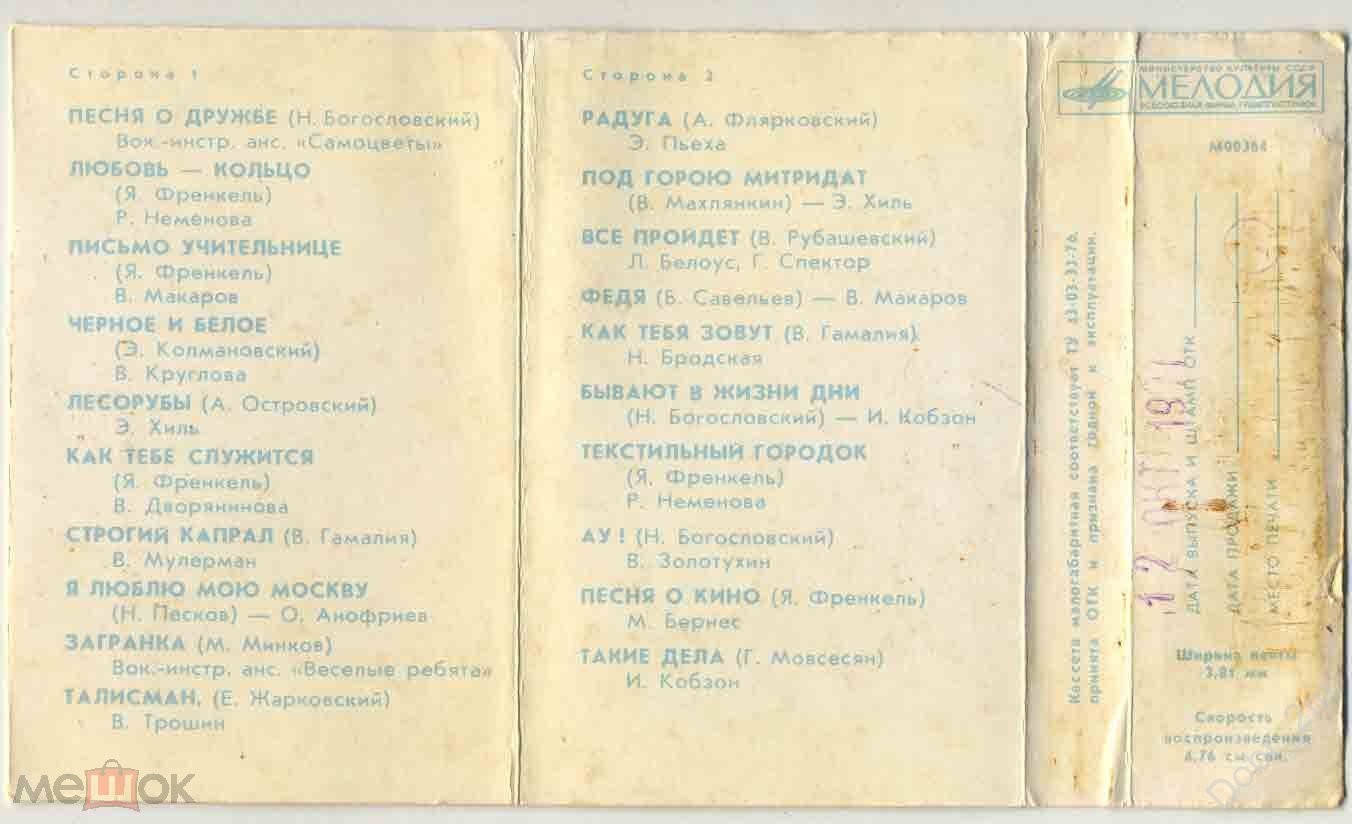 Сторона 1
ПЕСНЯ О ДРУЖБЕ (Н. Богословский)
Вок.-инстр. анс. «Самоцветы»
ЛЮБОВЬ — КОЛЬЦО
(Я. Френкель)
Р. Неменова
ПИСЬМО УЧИТЕЛЬНИЦЕ
(Я. Френкель)
В. Макаров
ЧЕРНОЕ И БЕЛОЕ
(Э. Колмановский)
В. Круглова
ЛЕСОРУБЫ (А. Островский)
Э. Хиль
КАК ТЕБЕ СЛУЖИТСЯ
(Я. Френкель)
В. Дворянинова
СТРОГИЙ КАПРАЛ (В. Гамалия)
В. Мулерман
Я ЛЮБЛЮ МОЮ МОСКВУ
(Н. Песков) — О. Анофриев
ЗАГРАНКА (М. Минков)
Вок.-инстр. анс. «Веселые ребята»
ТАЛИСМАН, (Е. Жарковский)
В. Трошин
Сторона 2
РАДУГА (А. Флярковский)
Э. Пьеха
ПОД ГОРОЮ МИТРИДАТ
(В. Махлянкин) — Э. Хиль
ВСЕ ПРОЙДЕТ (В. Рубашевский)
Л. Белоус, Г. Спектор
ФЕДЯ (Б. Савельев) — В. Макаров
КАК ТЕБЯ ЗОВУТ (В. Гамалия)
Н. Бродская
БЫВАЮТ В ЖИЗНИ ДНИ
(Н. Богословский) — И. Кобзон
ТЕКСТИЛЬНЫЙ ГОРОДОК
(Я. Френкель)
Р. Неменова
АУ! (Н. Богословский)
В. Золотухин
ПЕСНЯ О КИНО (Я. Френкель)
М. Бернес
ТАКИЕ ДЕЛА (Г. Мовсесян)
И. Кобзон
Кассета малогабаритная соответствует ТУ 43-03-33-76,
принята ОТК и признана годной к эксплуатации.
МИНИСТЕРСТВО КУЛЬТУРЫ СССР
МЕЛОДИЯ
ВСЕСОЮЗНАЯ ФИРМА ГРАМПЛАСТИНОК
М00364
12 ОКТ 19
ДАТА ВЫПУСКА И ШТАМП ОТК
ДАТА ПРОДАЖИ
МЕСТО ПЕЧАТИ
Ширина ленты
3,81 мм
Скорость
воспроизведения
4,76 см сек.
мешок